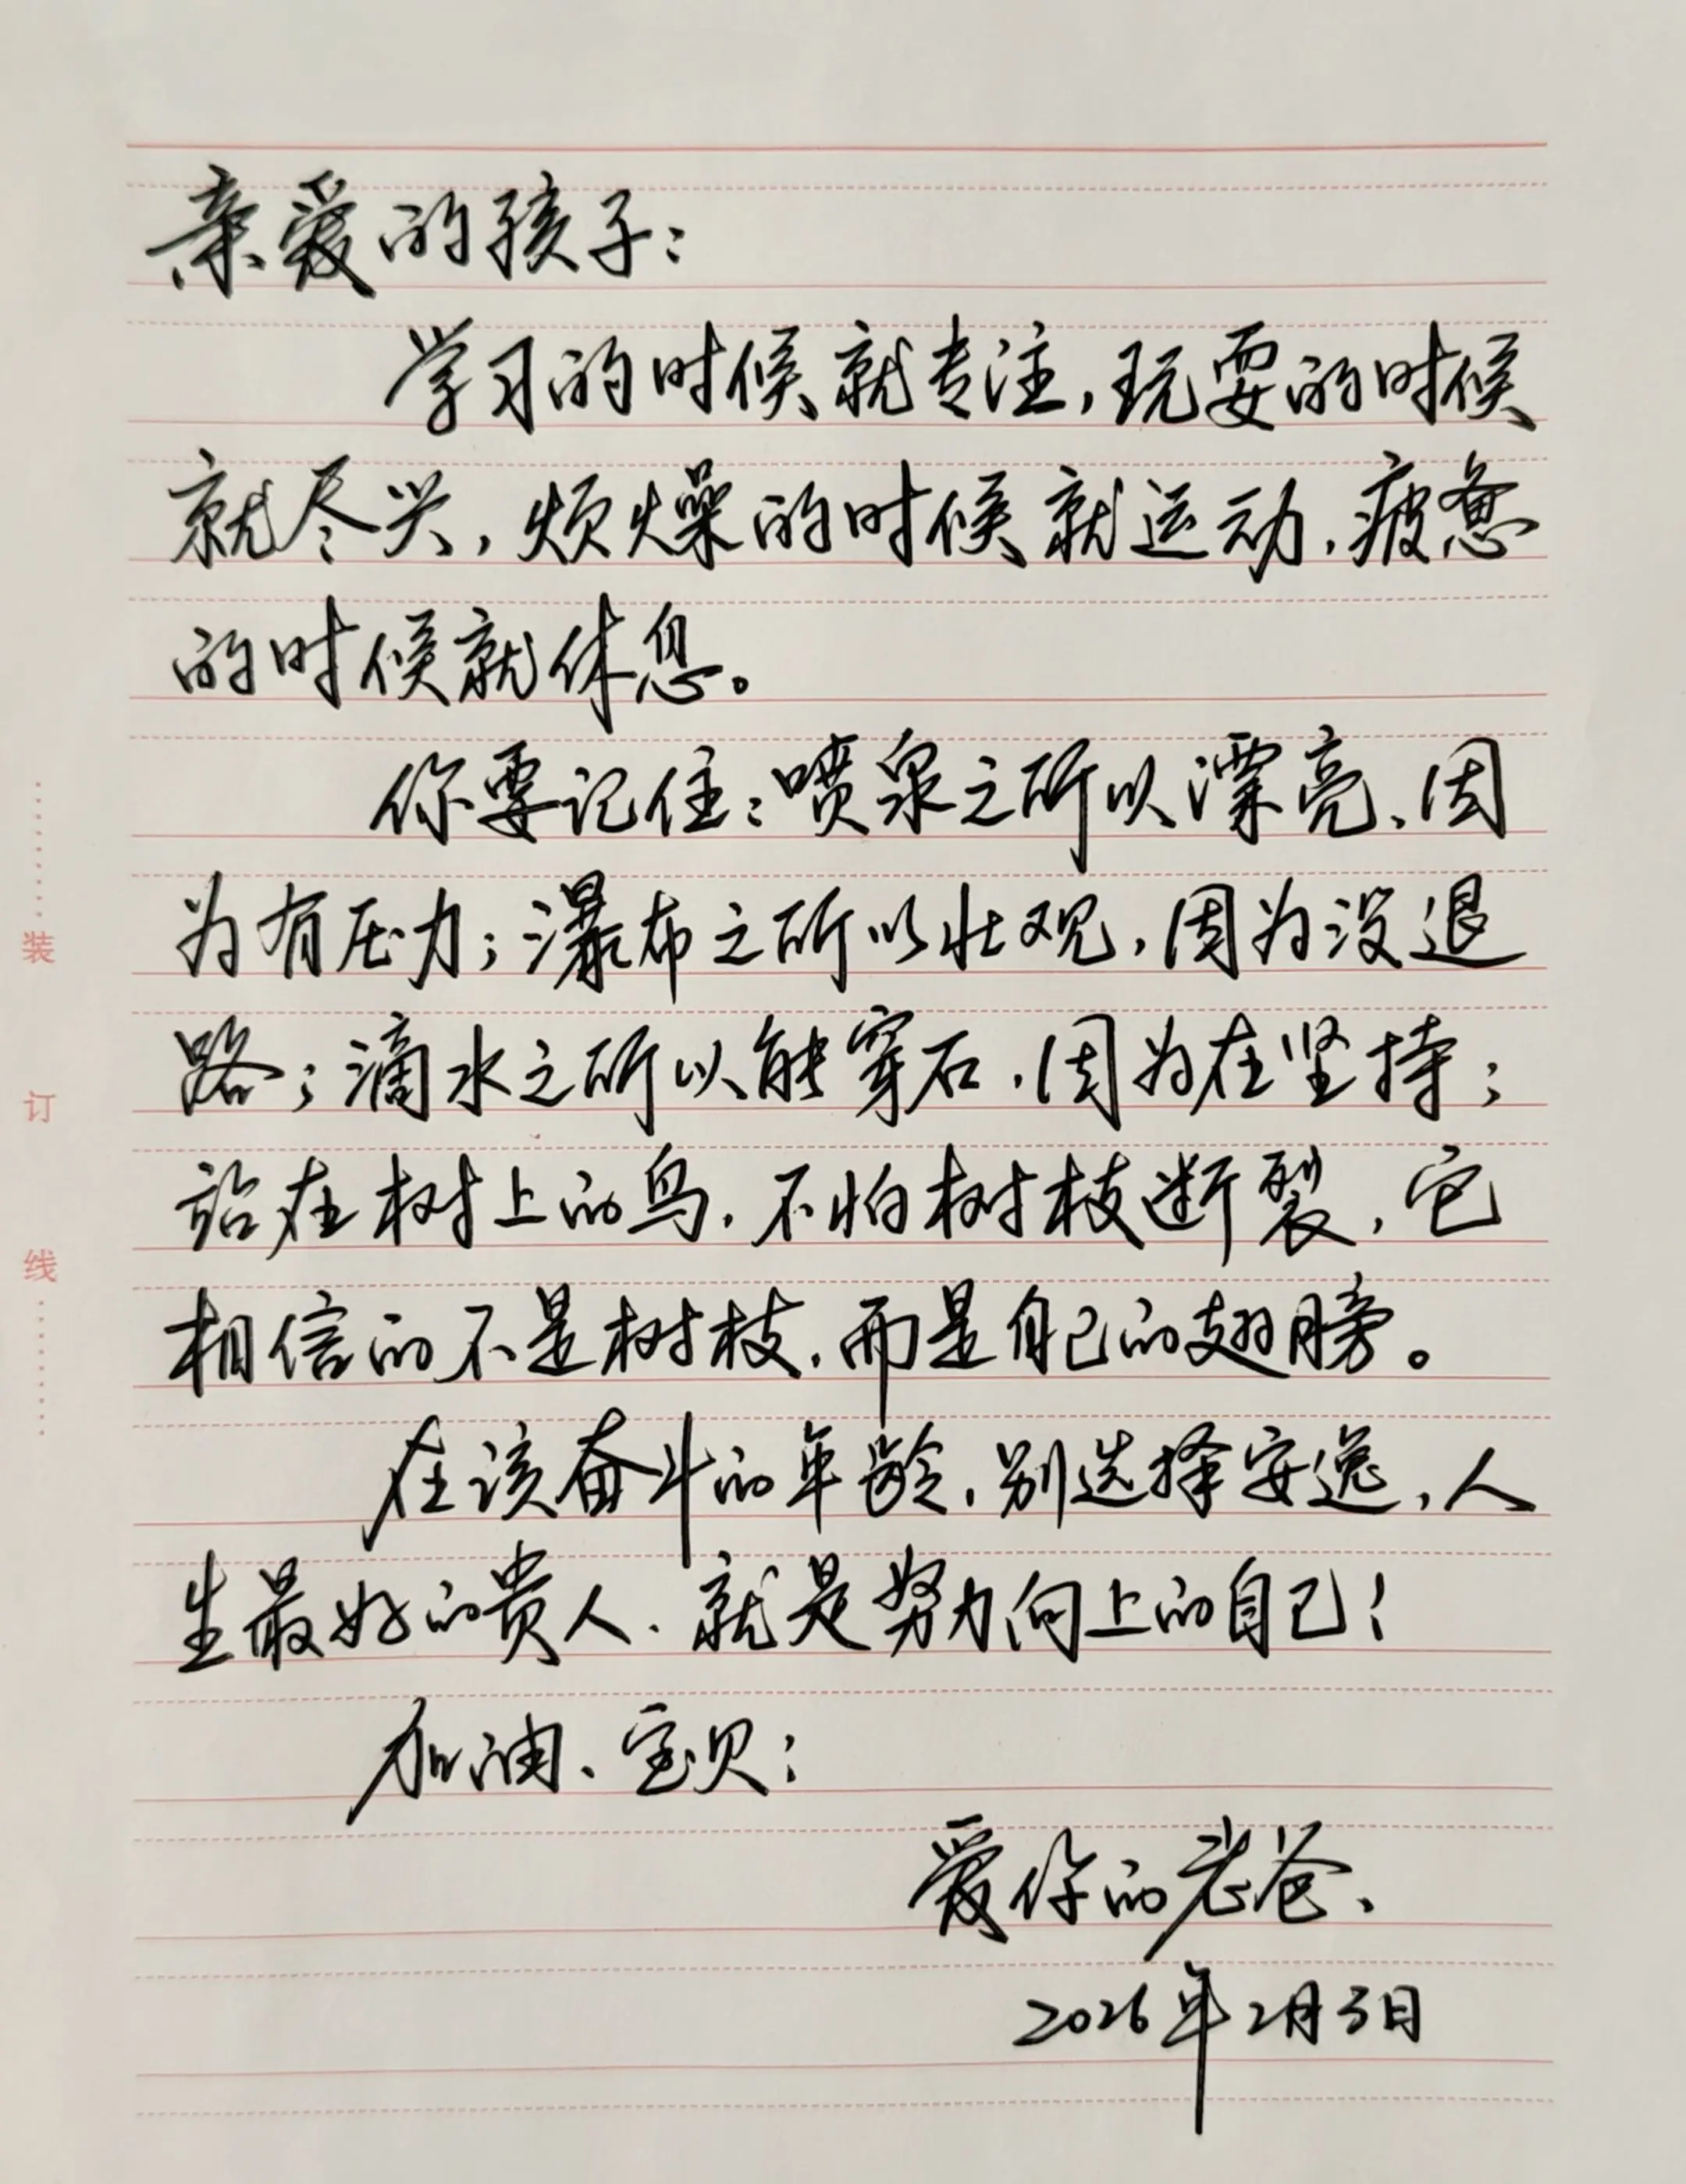 亲爱的孩子:
学习的时候就专注,玩耍的时候
就尽兴,烦燥的时候就运动,疲惫
的时候就休息。
你要记住:喷泉之所以漂亮、因
为有压力;瀑布之所以壮观,因为没退
路;滴水之所以能穿石,因为在坚持;
站在树上的鸟,不怕树枝断裂,它
相信的不是树枝,而是自己的翅膀。
在该奋斗的年龄,别选择安逸,人
生最好的贵人、就是努力向上的自己!
加油、宝贝!
爱你的老爸、
2026年2月3日
装
订
线